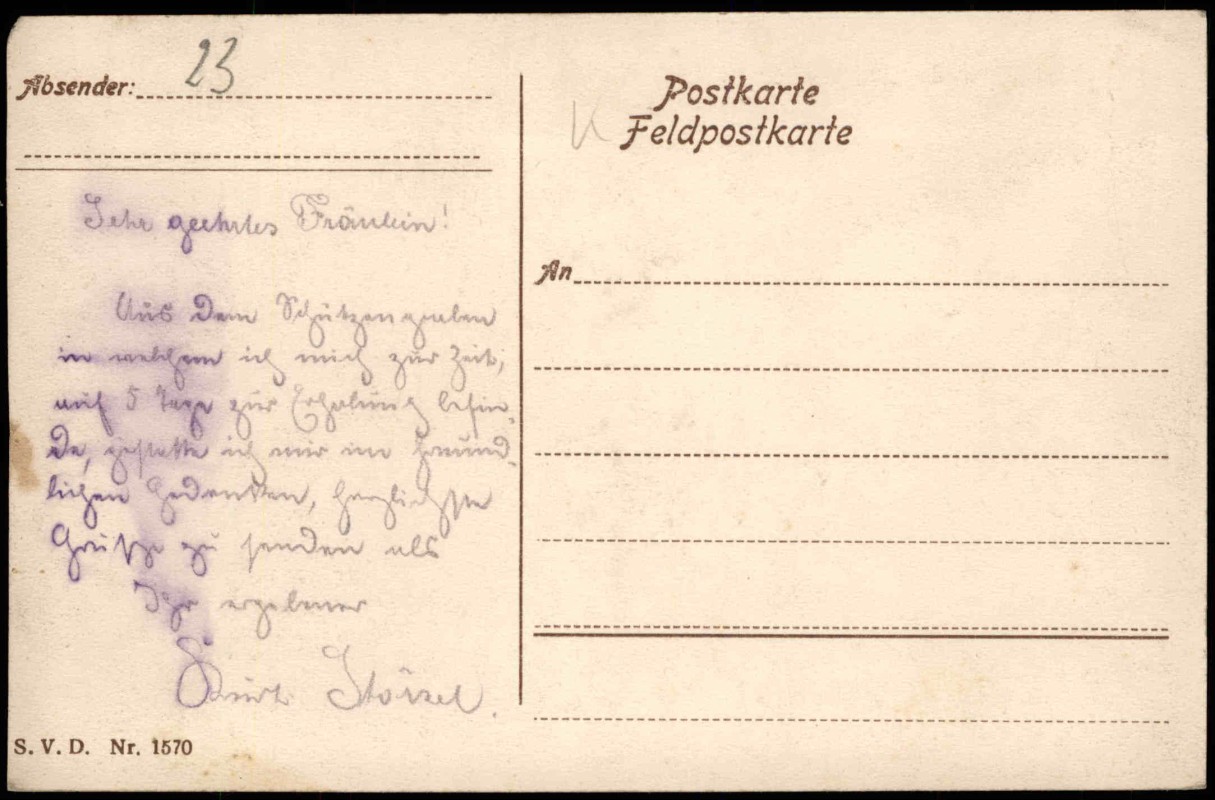 23
Absender:
Postkarte
K Feldpostkarte
Sehr geehrtes Fräulein!
An
Aus dem Schützengraben
in welchem ich mich zur Zeit,
auf 5 Tage zur Erholung befin-
de, gestatte ich mir im freund-
lichen Gedenken, herzlichste
Grüße zu senden als
Ihr ergebener
Kurt
S. V. D. Nr. 1570